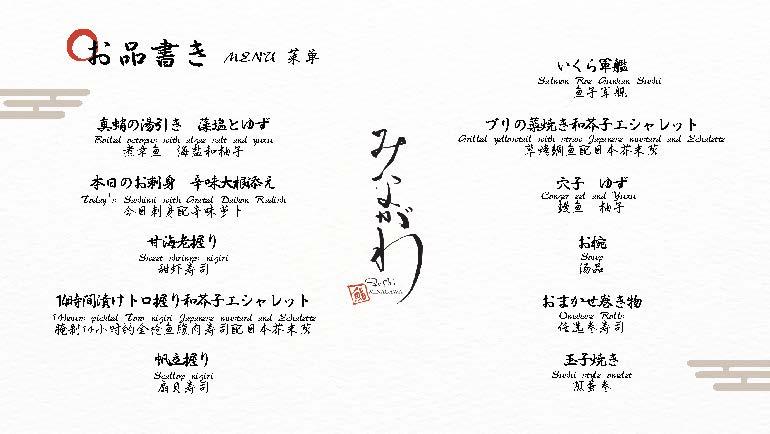 お品書き MENU 菜单
真蛸の湯引き 藻塩とゆず
Boiled octopus with algae salt and yuzu
煮章鱼 海盐和柚子
本日のお刺身 辛味大根添え
Today's Sashimi with Grated Daikon Radish
今日刺身配辛味萝卜
甘海老握り
Sweet shrimps nigiri
甜虾寿司
14時間漬けトロ握り和芥子エシャレット
14hours pickled Toro nigiri Japanese mustard and Echalette
腌制14小时的金枪鱼腹肉寿司配日本芥末葱
帆立握り
Scallop nigiri
扇贝寿司
みながわ
Sushi
MINAGAWA
鮨
いくら軍艦
Salmon Roe Gunkan Sushi
鱼子军舰
ブリの藁焼き和芥子エシャレット
Grilled yellowtail with straw Japanese mustard and Echalette
草烤鰤鱼配日本芥末葱
穴子 ゆず
Conger eel and Yuzu
鳗鱼 柚子
お椀
Soup
汤品
おまかせ巻き物
Omakase Rolls
任选卷寿司
玉子焼き
Sushi style omelet
煎蛋卷